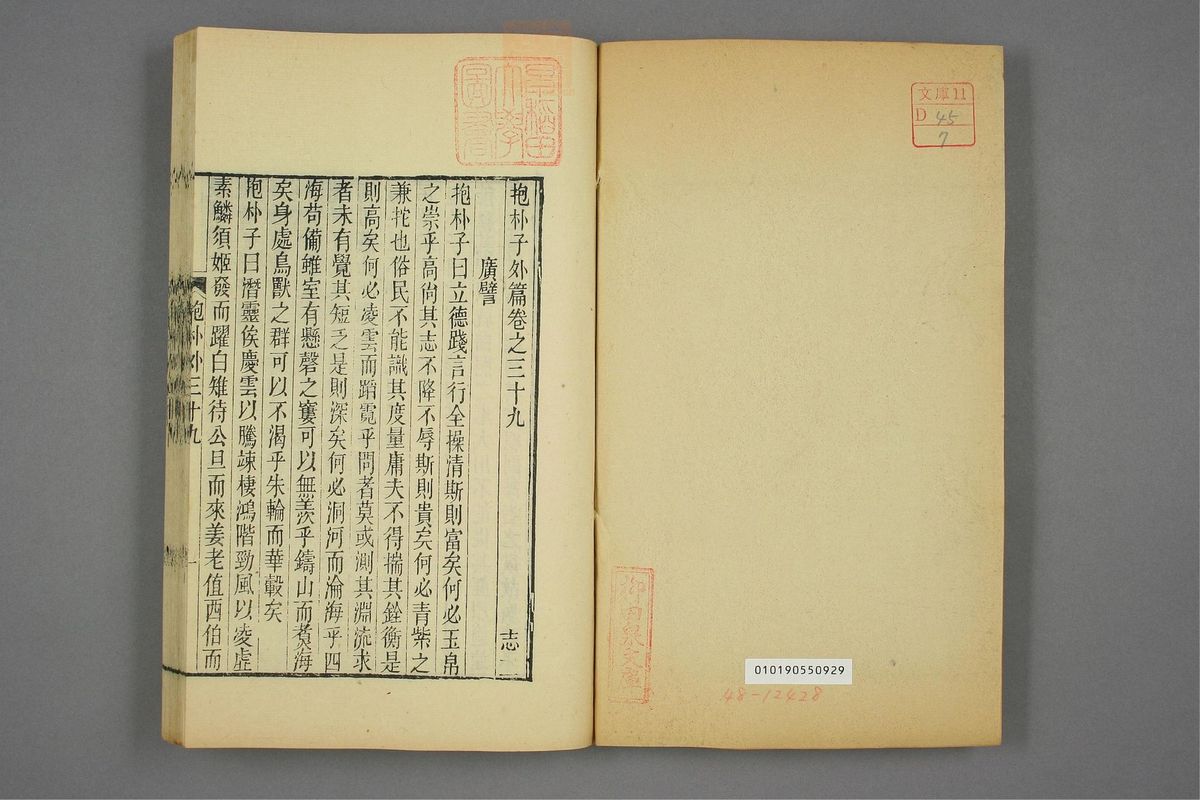 文庫11
D 45
7
柳田泉文庫
010190550929
48-12428
早稲田
大學
圖書
抱朴子外篇卷之三十九
志二
廣譬
抱朴子曰立德踐言行全操清斯則富矣何必玉帛
之崇乎高尙其志不降不辱斯則貴矣何必青紫之
兼拕也俗民不能識其度量庸夫不得揣其銓衡是
則高矣何必凌雲而蹈霓乎問者莫或測其淵流求
者未有覺其短乏是則深矣何必洞河而淪海乎四
海苟備雖室有懸磬之窶可以無羨乎鑄山而煑海
矣身處鳥獸之群可以不渴乎朱輪而華轂矣
抱朴子曰潛靈俟慶雲以騰竦棲鴻階勁風以凌虛
素鱗須姬發而躍白雉待公旦而來姜老值西伯而
抱朴外三十九
一